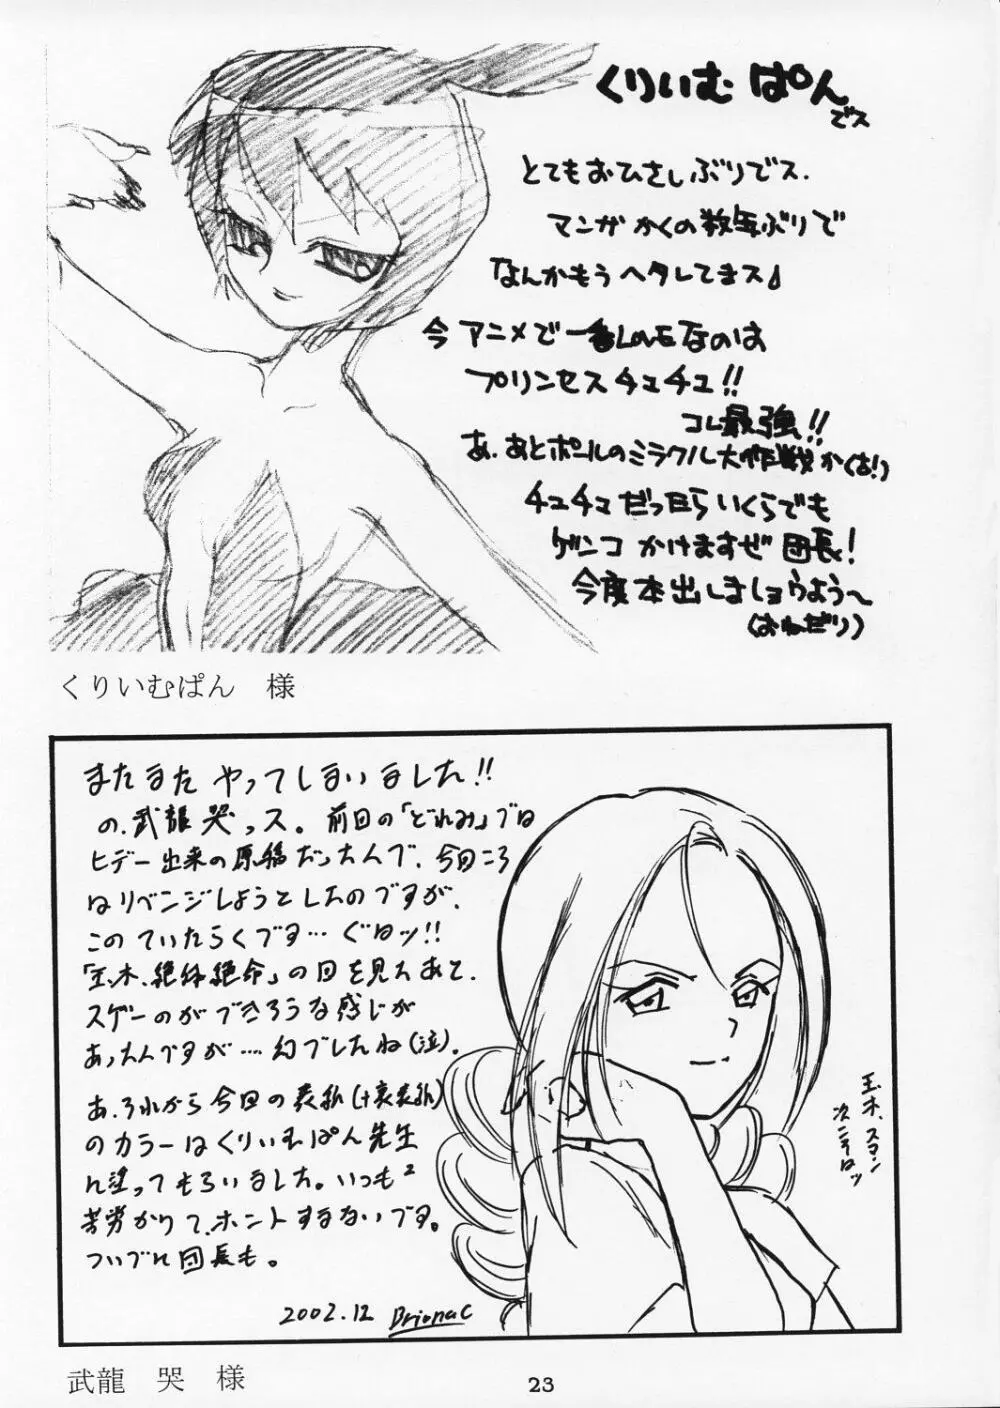 くりいむ ぱん
でス
とてもおひさしぶりでス.
マンガ かくの数年ぶりで
なんかもう ヘタレてまス
今 アニメで一番LOVEなのは
プリンセスチュチュ!!
コレ最強!!
あ、あとポールのミラクル大作戦か(古!)
チュチュだったらいくらでも
ゲンコ かけますぜ 団長!
今度本出しましョうよう〜
(おねだり)
くりいむぱん 様
またまた やってしまいました!!
の、武龍 哭っス。前回の「どれみ」では
ヒデー出来の原稿だったんで、今回こそ
はリベンジしようとしたのですが、
このていたらくです… ぐはッ!!
「玉木、絶体絶命」の回を見たあと、
スゲーのができそうな感じが
あったんですが…幻でしたね(泣).
あ、それから今回の表紙(+裏表紙)
のカラーはくりいむぱん先生
に塗ってもらいました。いっも²
苦労かけて、ホントすまないです。
ついでに団長も。
2002.12 Brionac
玉木、スマン
次こそはッ
武龍 哭 様
23